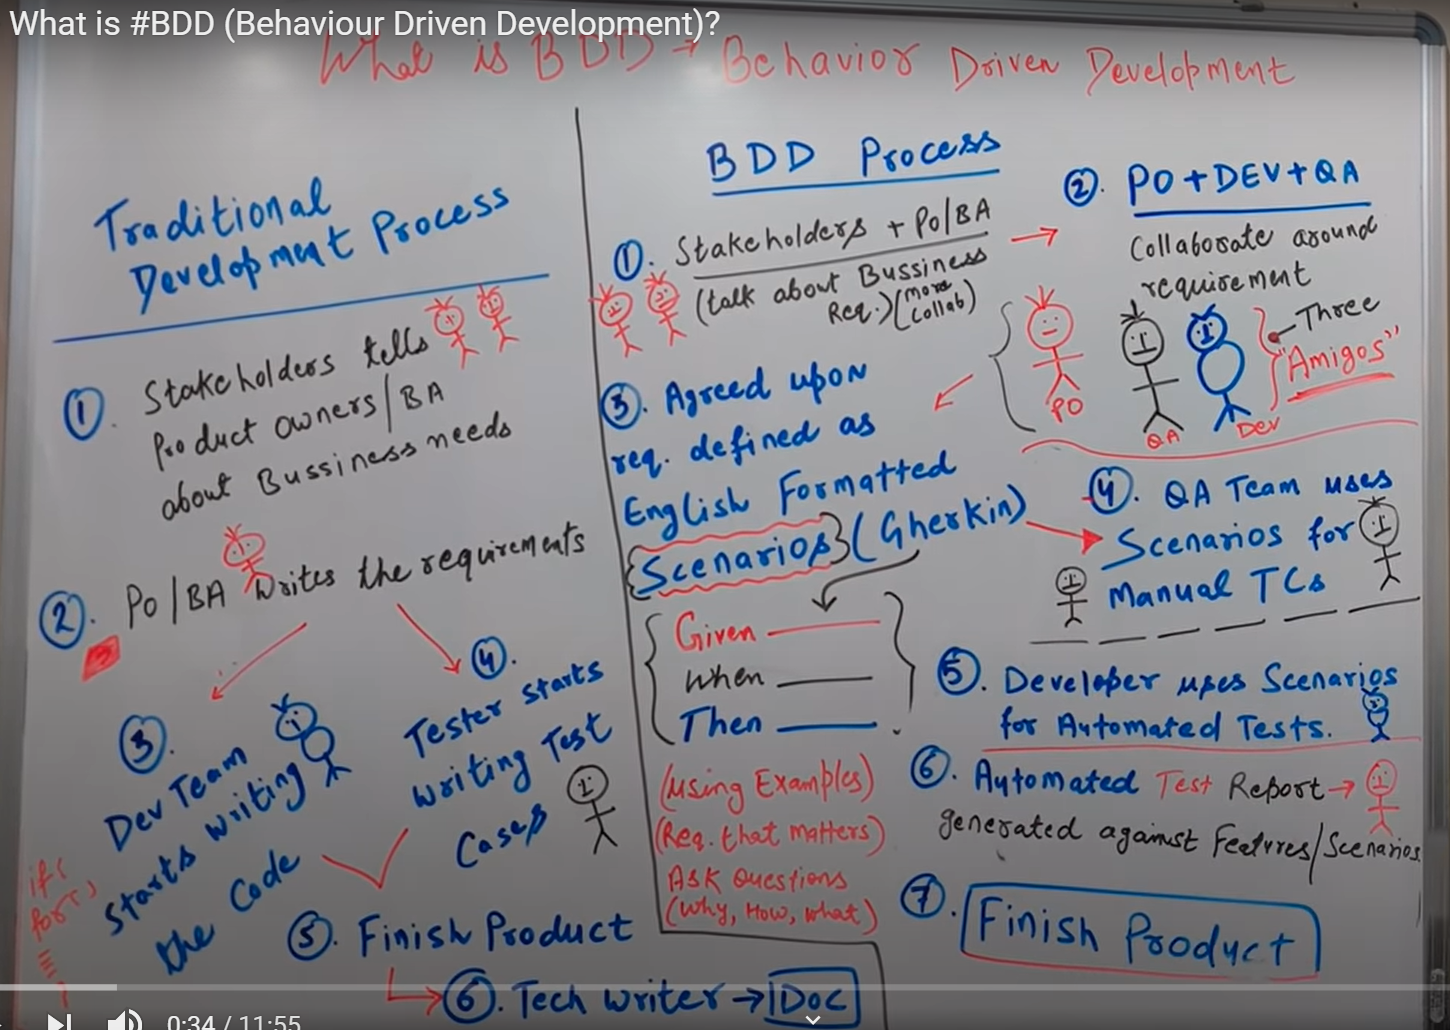 What is #BDD (Behaviour Driven Development)?
What is BDD → Behavior Driven Development
Traditional
Development Process
①. Stakeholders tells
Product owners/BA
about Bussiness needs
②. PO/BA Writes the requirements
③.
Dev Team
Starts writing
the Code
④.
Tester starts
writing Test
Cases
⑤. Finish Product
⑥. Tech writer → Doc
BDD Process
①. Stakeholders + PO/BA
(talk about Bussiness
Req.) (more
Collab)
②. PO+DEV+QA
Collaborate around
requirement
Three
"Amigos"
PO
QA
Dev
③. Agreed upon
req. defined as
English Formatted
Scenarios (Gherkin)
Given
When
Then
(Using Examples)
(Req. that matters)
Ask Questions
(Why, How, what)
④. QA Team uses
Scenarios for
Manual TCs
⑤. Developer uses Scenarios
for Automated Tests.
⑥. Automated Test Report →
generated against Featvres/Scenarios.
⑦. Finish Product
0:34 / 11:55